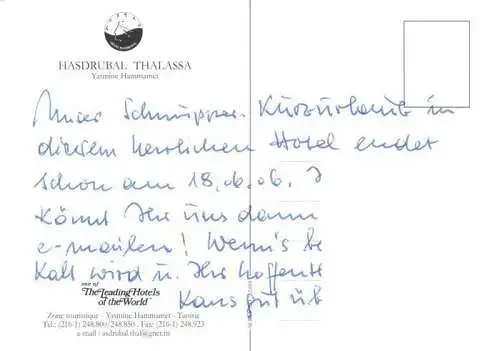 HASDRUBAL THALASSA
Yasmine Hammamet
Unser Schnupper-Kurzurlaub in
diesem herrlichen Hotel endet
schon am 18.06.06.
Könnt Ihr uns dann
e-mailen! Wenn's be
kalt wird u. Ihr hoffentl
gut üb
one of
The Leading Hotels
of the World
Zone touristique - Yasmine Hammamet - Tunisie
Tel.: (216-1) 248.800/248.850 - Fax: (216-1) 248.923
e-mail : asdrubal.thal@gnet.tn